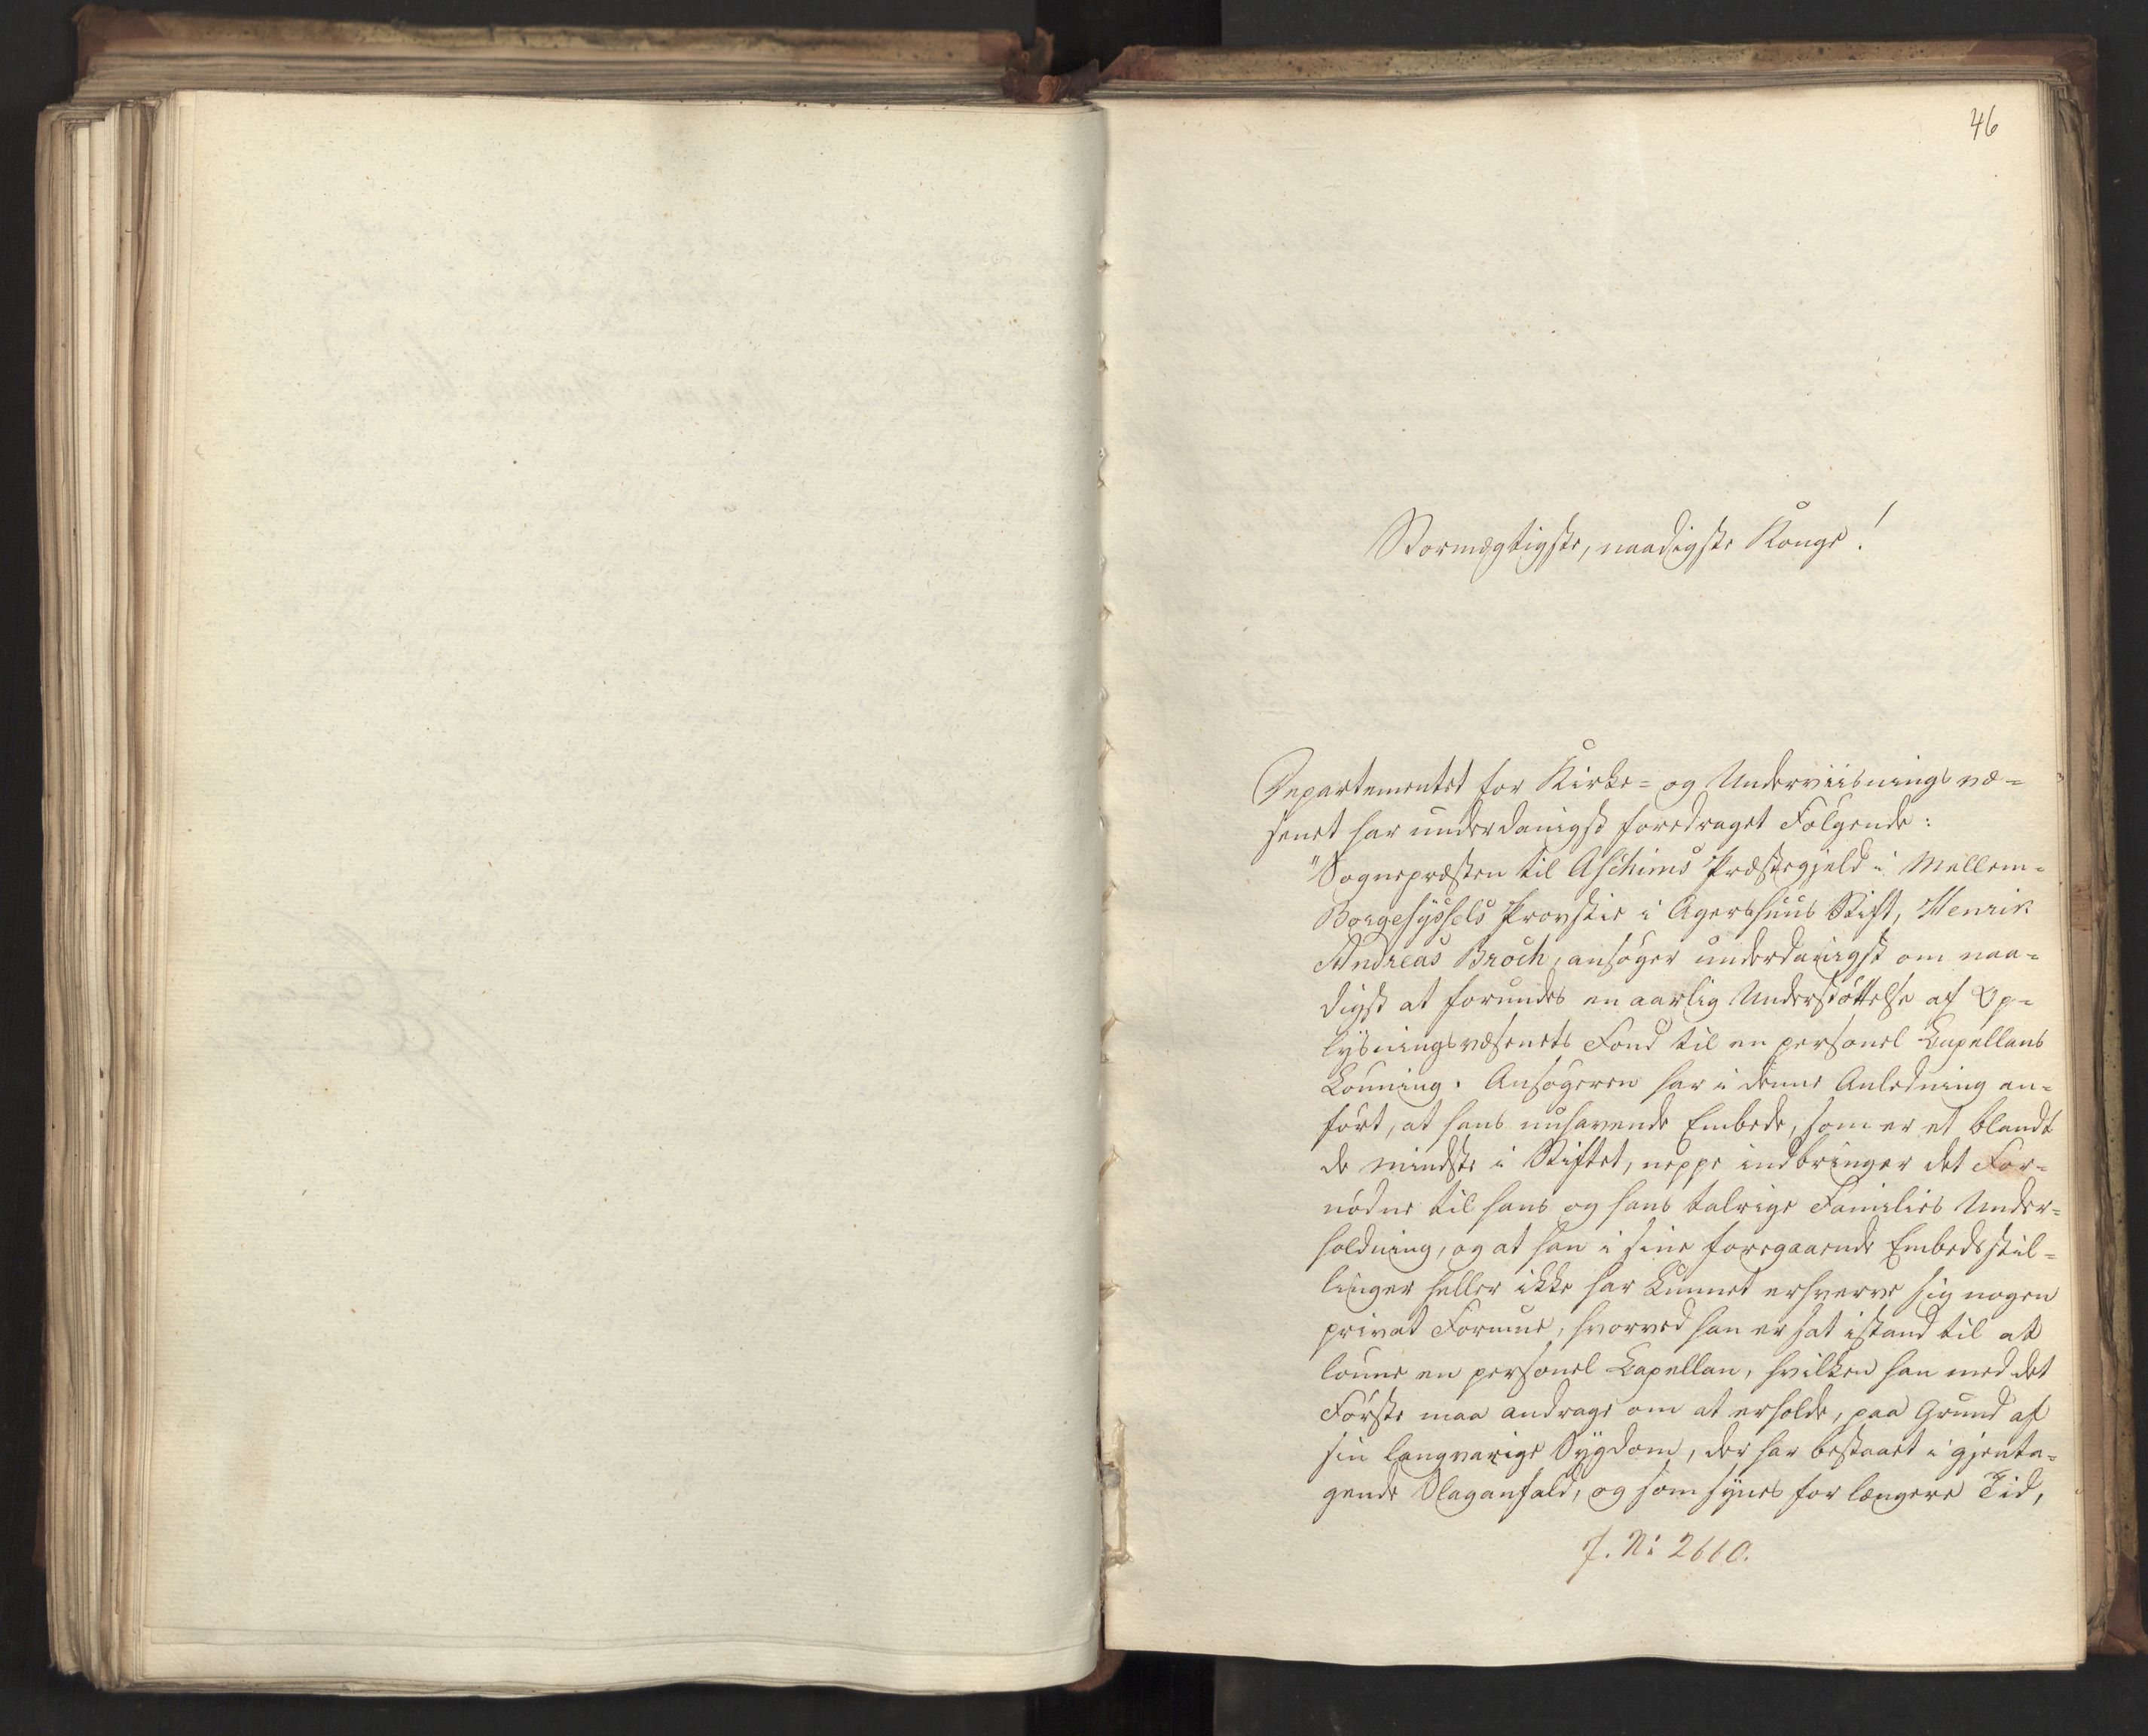 46
Stormægtigste, naadigste Konge!
Departementet for Kirke- og Underviisningsvæ-
senet har underdanigst foredraget Følgende:
"Sognepræsten til Aschims Præstegjeld i Mellem-
Borgesyssels Provstie i Agershuus Stift, Henrik
Andreas Broch, ansøger underdanigst om naa-
digst at forundes en aarlig Understøttelse af Op-
lysningsvæsenets Fond til en personel Capellans
Lønning. Ansøgeren har i denne Anledning an-
ført, at hans nuhavende Embede, som er et blandt
de mindste i Stiftet, neppe indbringer det For-
nødne til hans og hans talrige Families Under-
holdning, og at han i sine foregaaende Embedsstil-
linger heller ikke har kunnet erhverve sig nogen
privat Formue, hvorved han er sat istand til at
lønne en personel Capellan, hvilken han med det
Første maa andrage om at erholde, paa Grund af
sin langvarige Sygdom, der har bestaaet i gjenta-
gende Slaganfald, og som synes for længere Tid,
J. N: 2610.